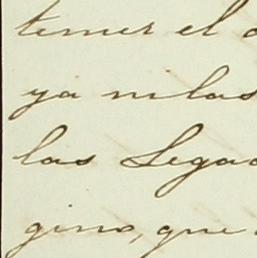 temer el
ya en las
las Legac
gino, que